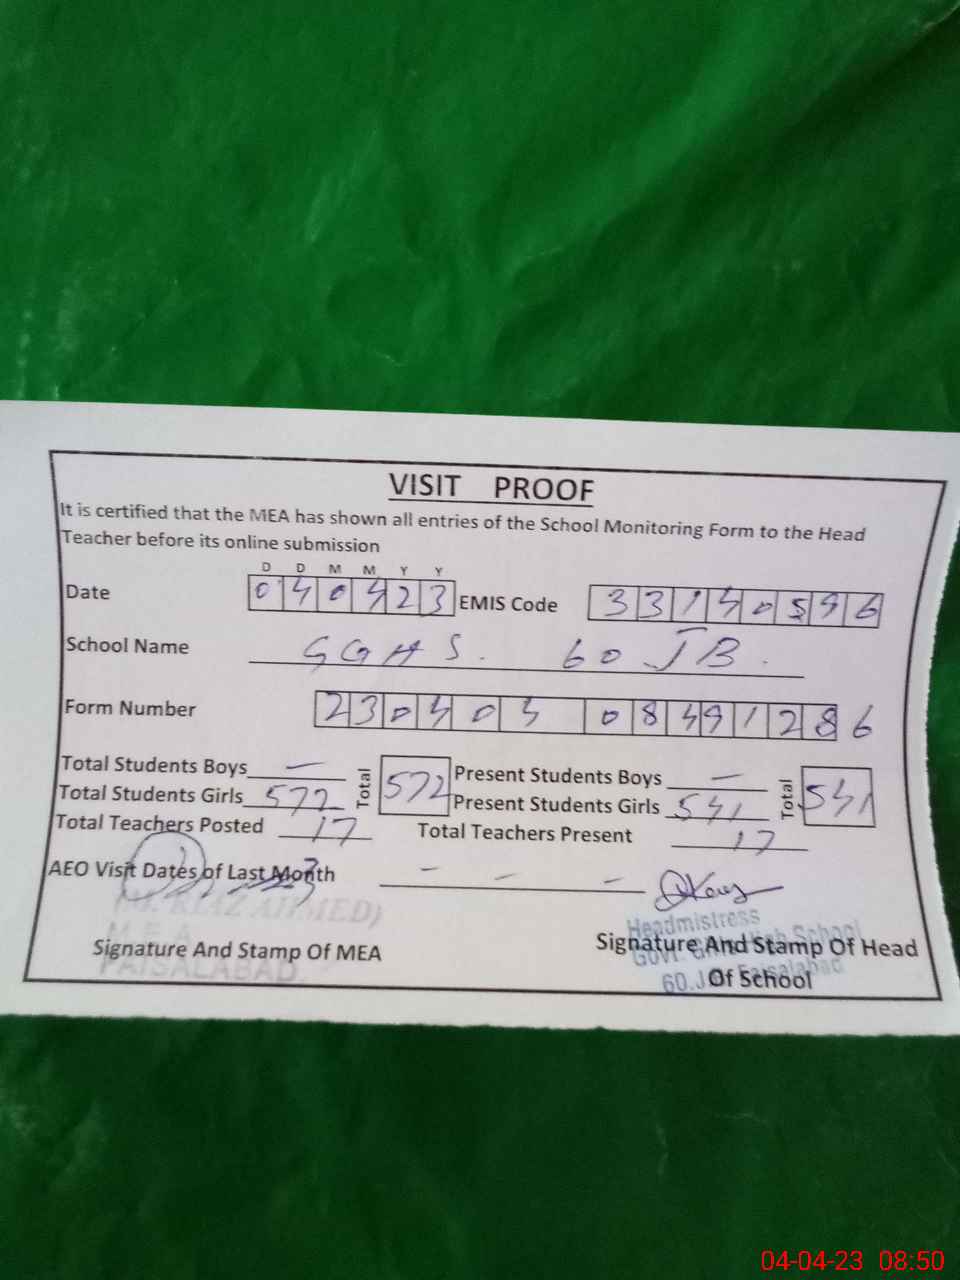 VISIT PROOF
It is certified that the MEA has shown all entries of the School Monitoring Form to the Head
Teacher before its online submission
D D M M Y Y
Date 040423 EMIS Code 33140596
School Name GGHS. 60 JB.
Form Number 230404 08491286
Total Students Boys — Total 572 Present Students Boys — Total 541
Total Students Girls 572 Present Students Girls 541
Total Teachers Posted 17 Total Teachers Present 17
AEO Visit Dates of Last Month - - -
(M. RIAZ AHMED)
MEA
FAISALABAD.
Signature And Stamp Of MEA
Headmistress
Govt. Girls High School
60.J Faisalabad
Signature And Stamp Of Head
Of School
04-04-23 08:50